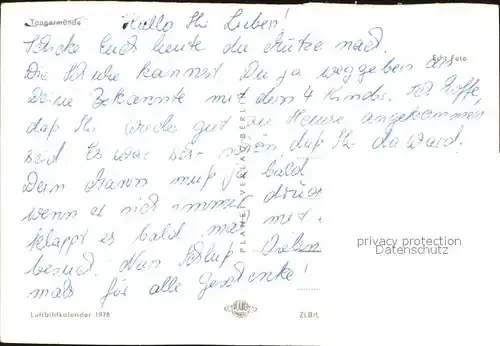 Tangermünde
Hallo Ihr Lieben!
Schicke Euch heute die Mütze nach.
Echt Foto
Die Schuhe kannst Du ja weggeben an
Deine Bekannte mit den 4 Kinder. Ich hoffe,
daß Ihr wieder gut zu Hause angekommen
seid. Es war sehr schön daß Ihr da ward.
Dein Mann muß ja bald
wenn er nicht immer
klappt es bald mal mit
besuch. Nun Schluß
mals für alle Geschenke!
PLANET-VERLAG BERLIN
privacy protection
Datenschutz
Luftbildkalender 1978
PLANET
ZLBft